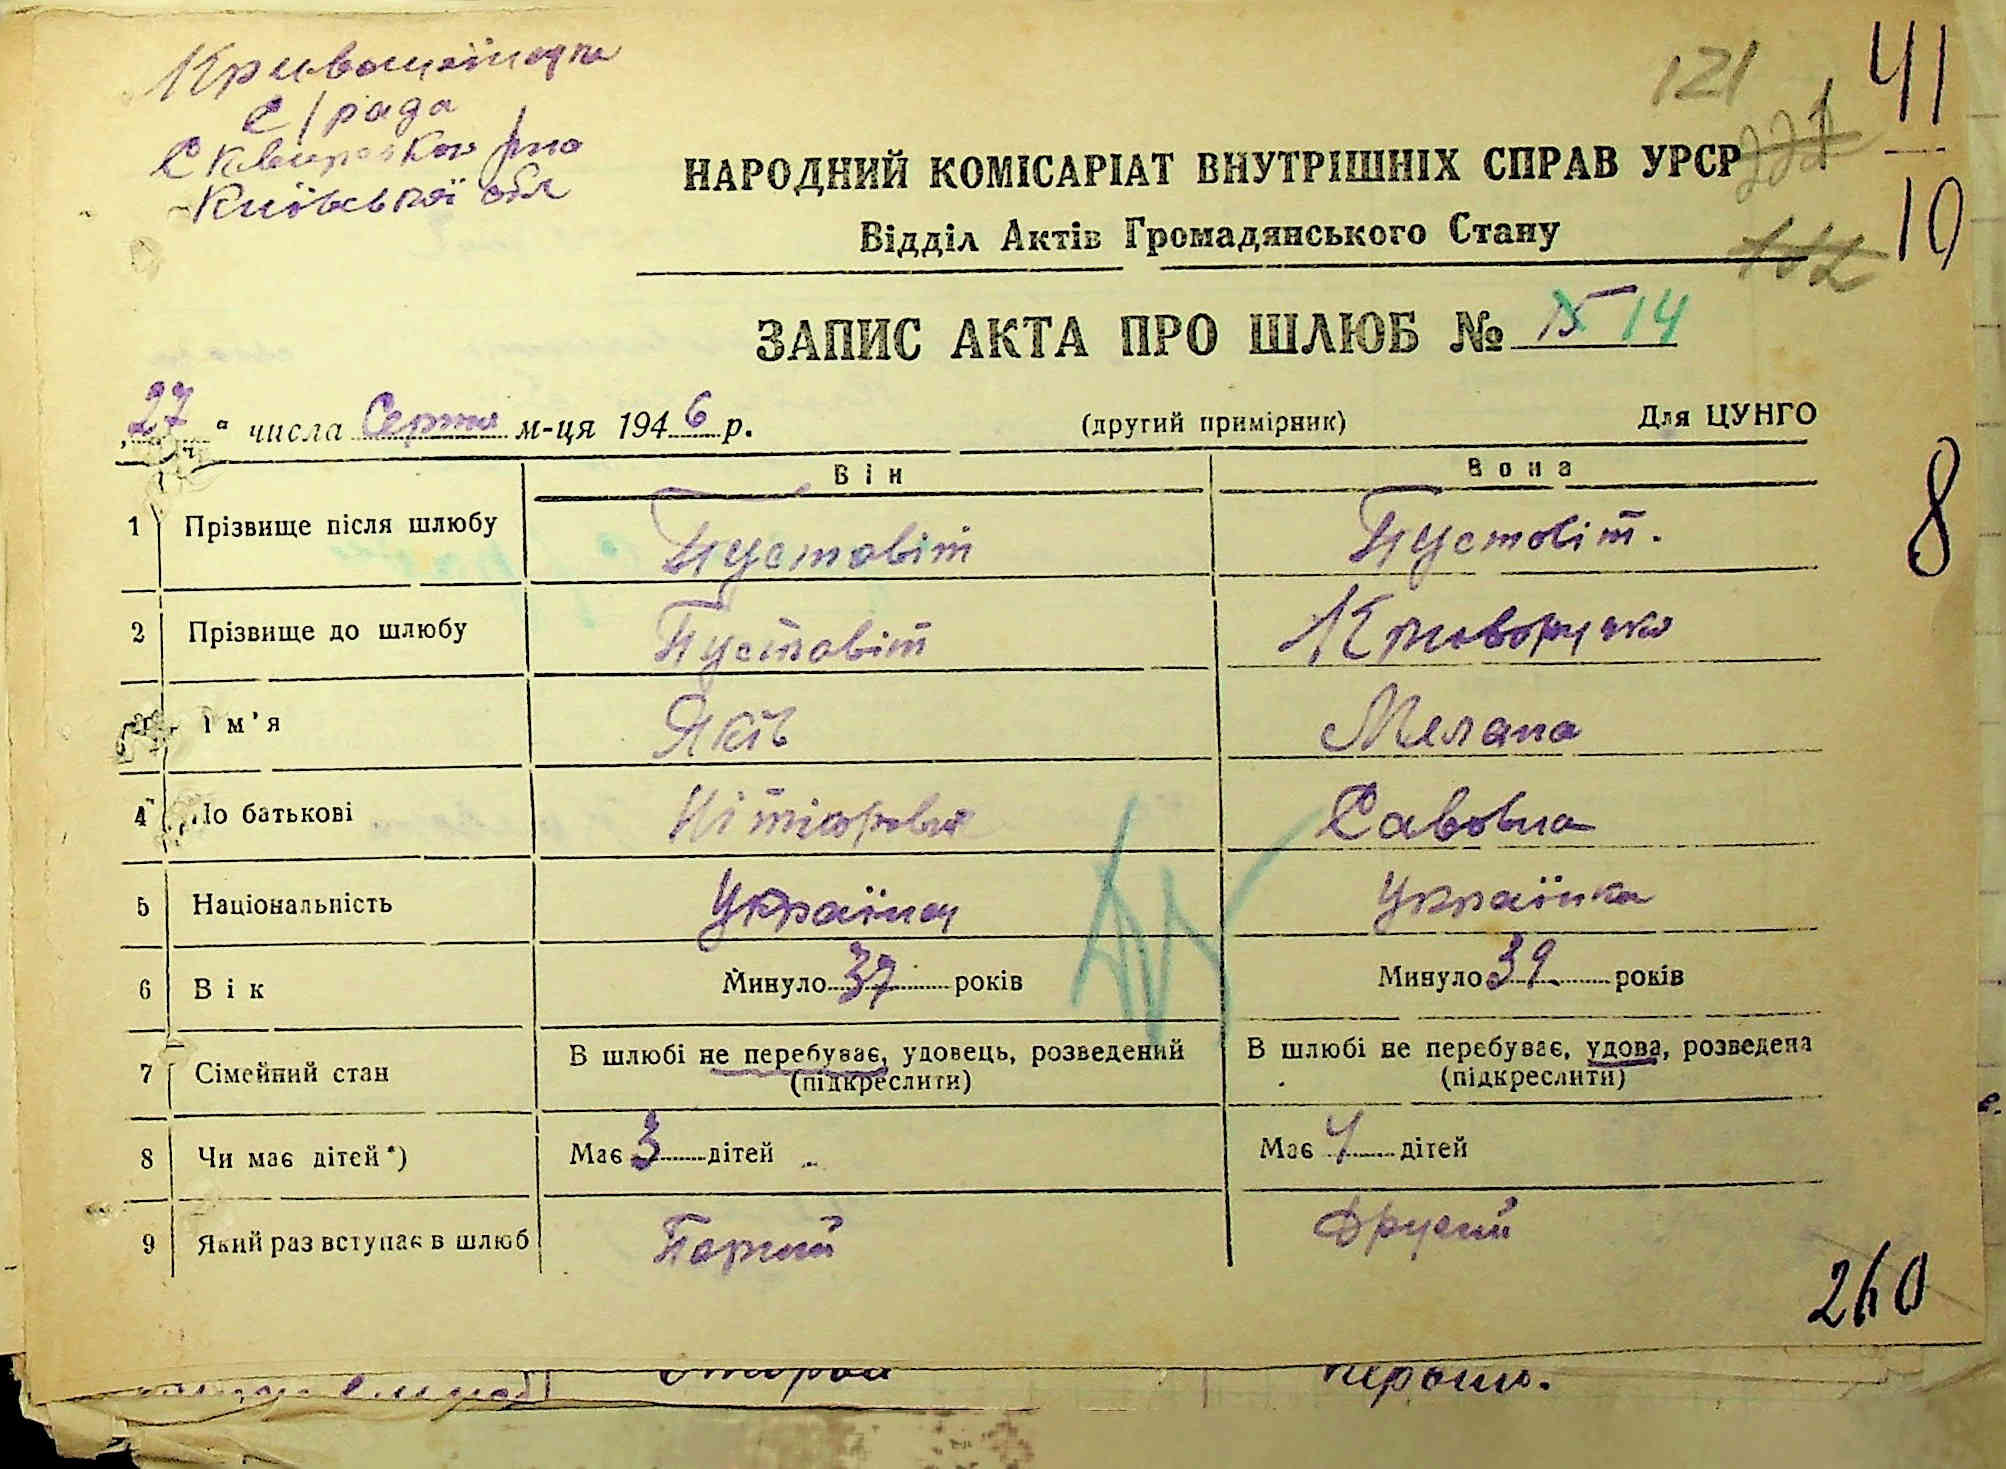 Кривошеїнська
с/рада
Сквирського р-но
Київської обл
121
41
10
НАРОДНИЙ КОМІСАРІАТ ВНУТРІШНІХ СПРАВ УРСР
Відділ Актів Громадянського Стану
ЗАПИС АКТА ПРО ШЛЮБ № 15 14
„27“ числа Серпня м-ця 1946 р. (другий примірник) Для ЦУНГО
Він Вона
1 Прізвище після шлюбу Пустовіт Пустовіт.
8
2 Прізвище до шлюбу Пустовіт Криворучко
3 Ім'я Яків Мелана
4 По батькові Савовна
5 Національність Українец Українка
6 Вік Минуло 37 років Минуло 39 років
7 Сімейний стан В шлюбі не перебуває, удовець, розведений В шлюбі не перебуває, удова, розведена
(підкреслити) (підкреслити)
8 Чи має дітей*) Має 3 дітей Має 4 дітей
9 Який раз вступає в шлюб Перший Другий
260